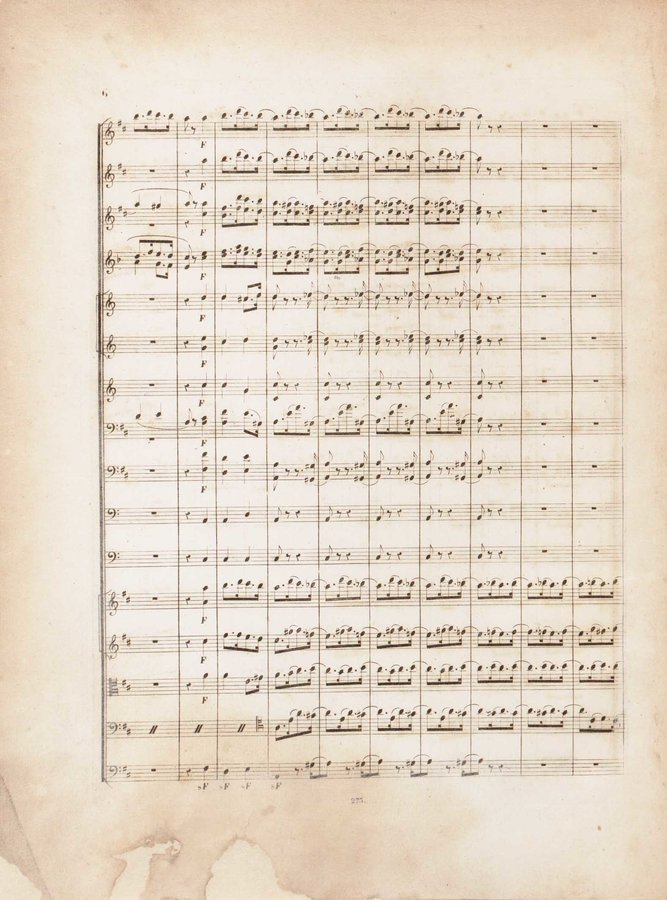 F
F
F
F
F
F
F
F
F
F
F
F
sF sF sF sF
275.